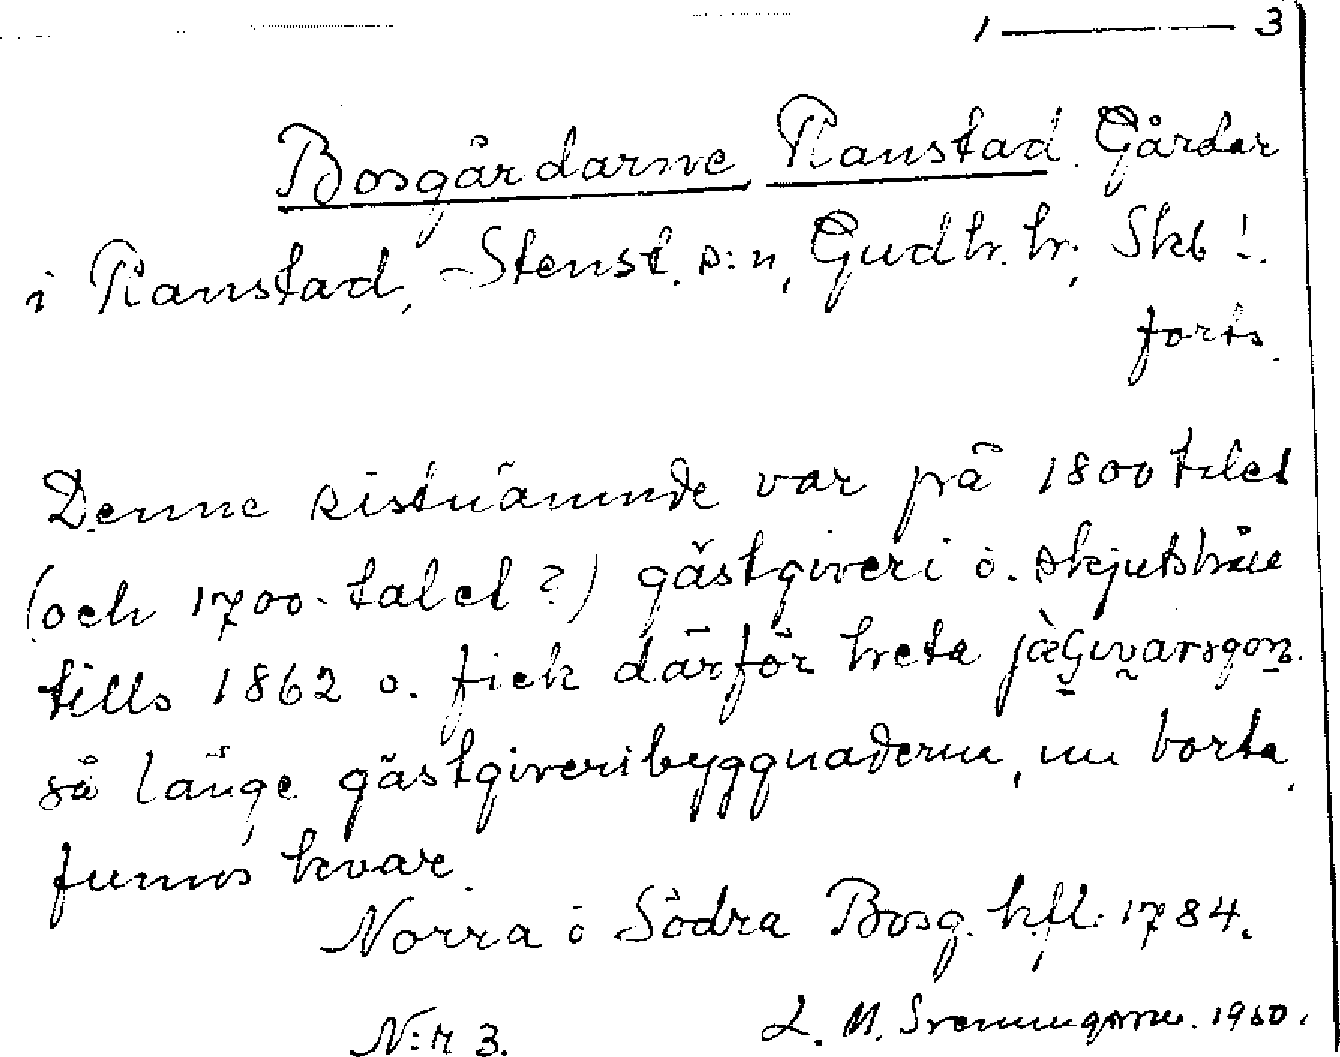 1 — 3
Bosgårdarne Ranstad. Gårdar
i Ranstad, Stenst. s:n, Gudh. h., Skb l.
forts.
Denne sistnämnde var på 1800 talet
(och 1700-talet?) gästgiveri o. skjutshåll
tills 1862 o. fick därför heta
så länge gästgiveribyggnaderna, nu borta,
funnos kvar.
Norra o Södra Bosg. kfl. 1784.
N:r 3. L. M. Svenungsson. 1950.